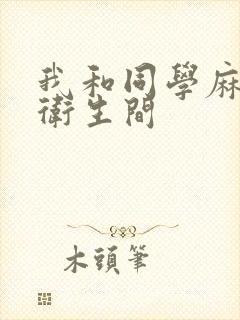 我和同學麻
衛生間
木頭筆